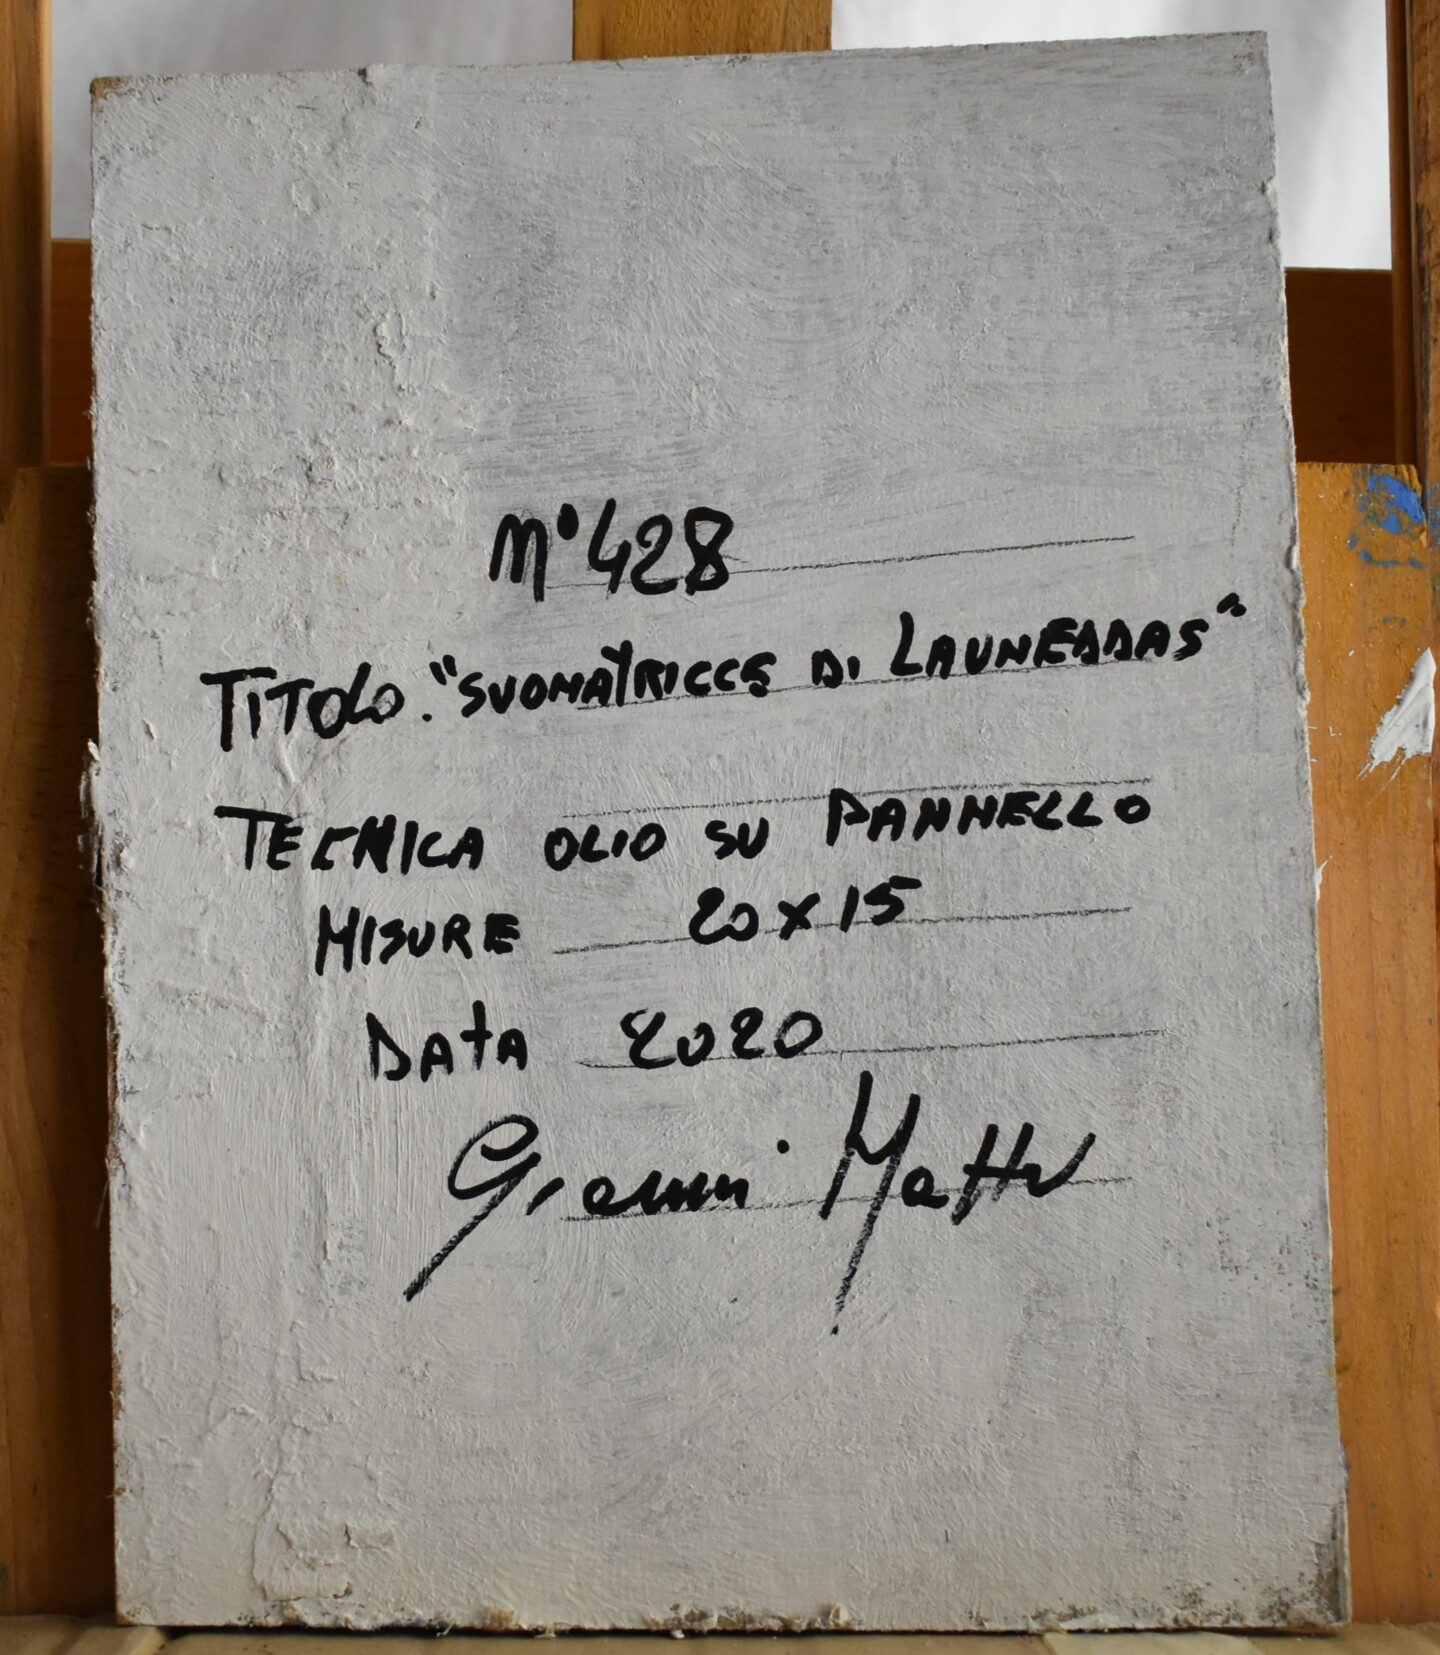 N°428
TITOLO. "SUONATRICCE DI LAUNEDDAS"
TECNICA OLIO SU PANNELLO
MISURE 20x15
DATA 2020
Gianni Mattu